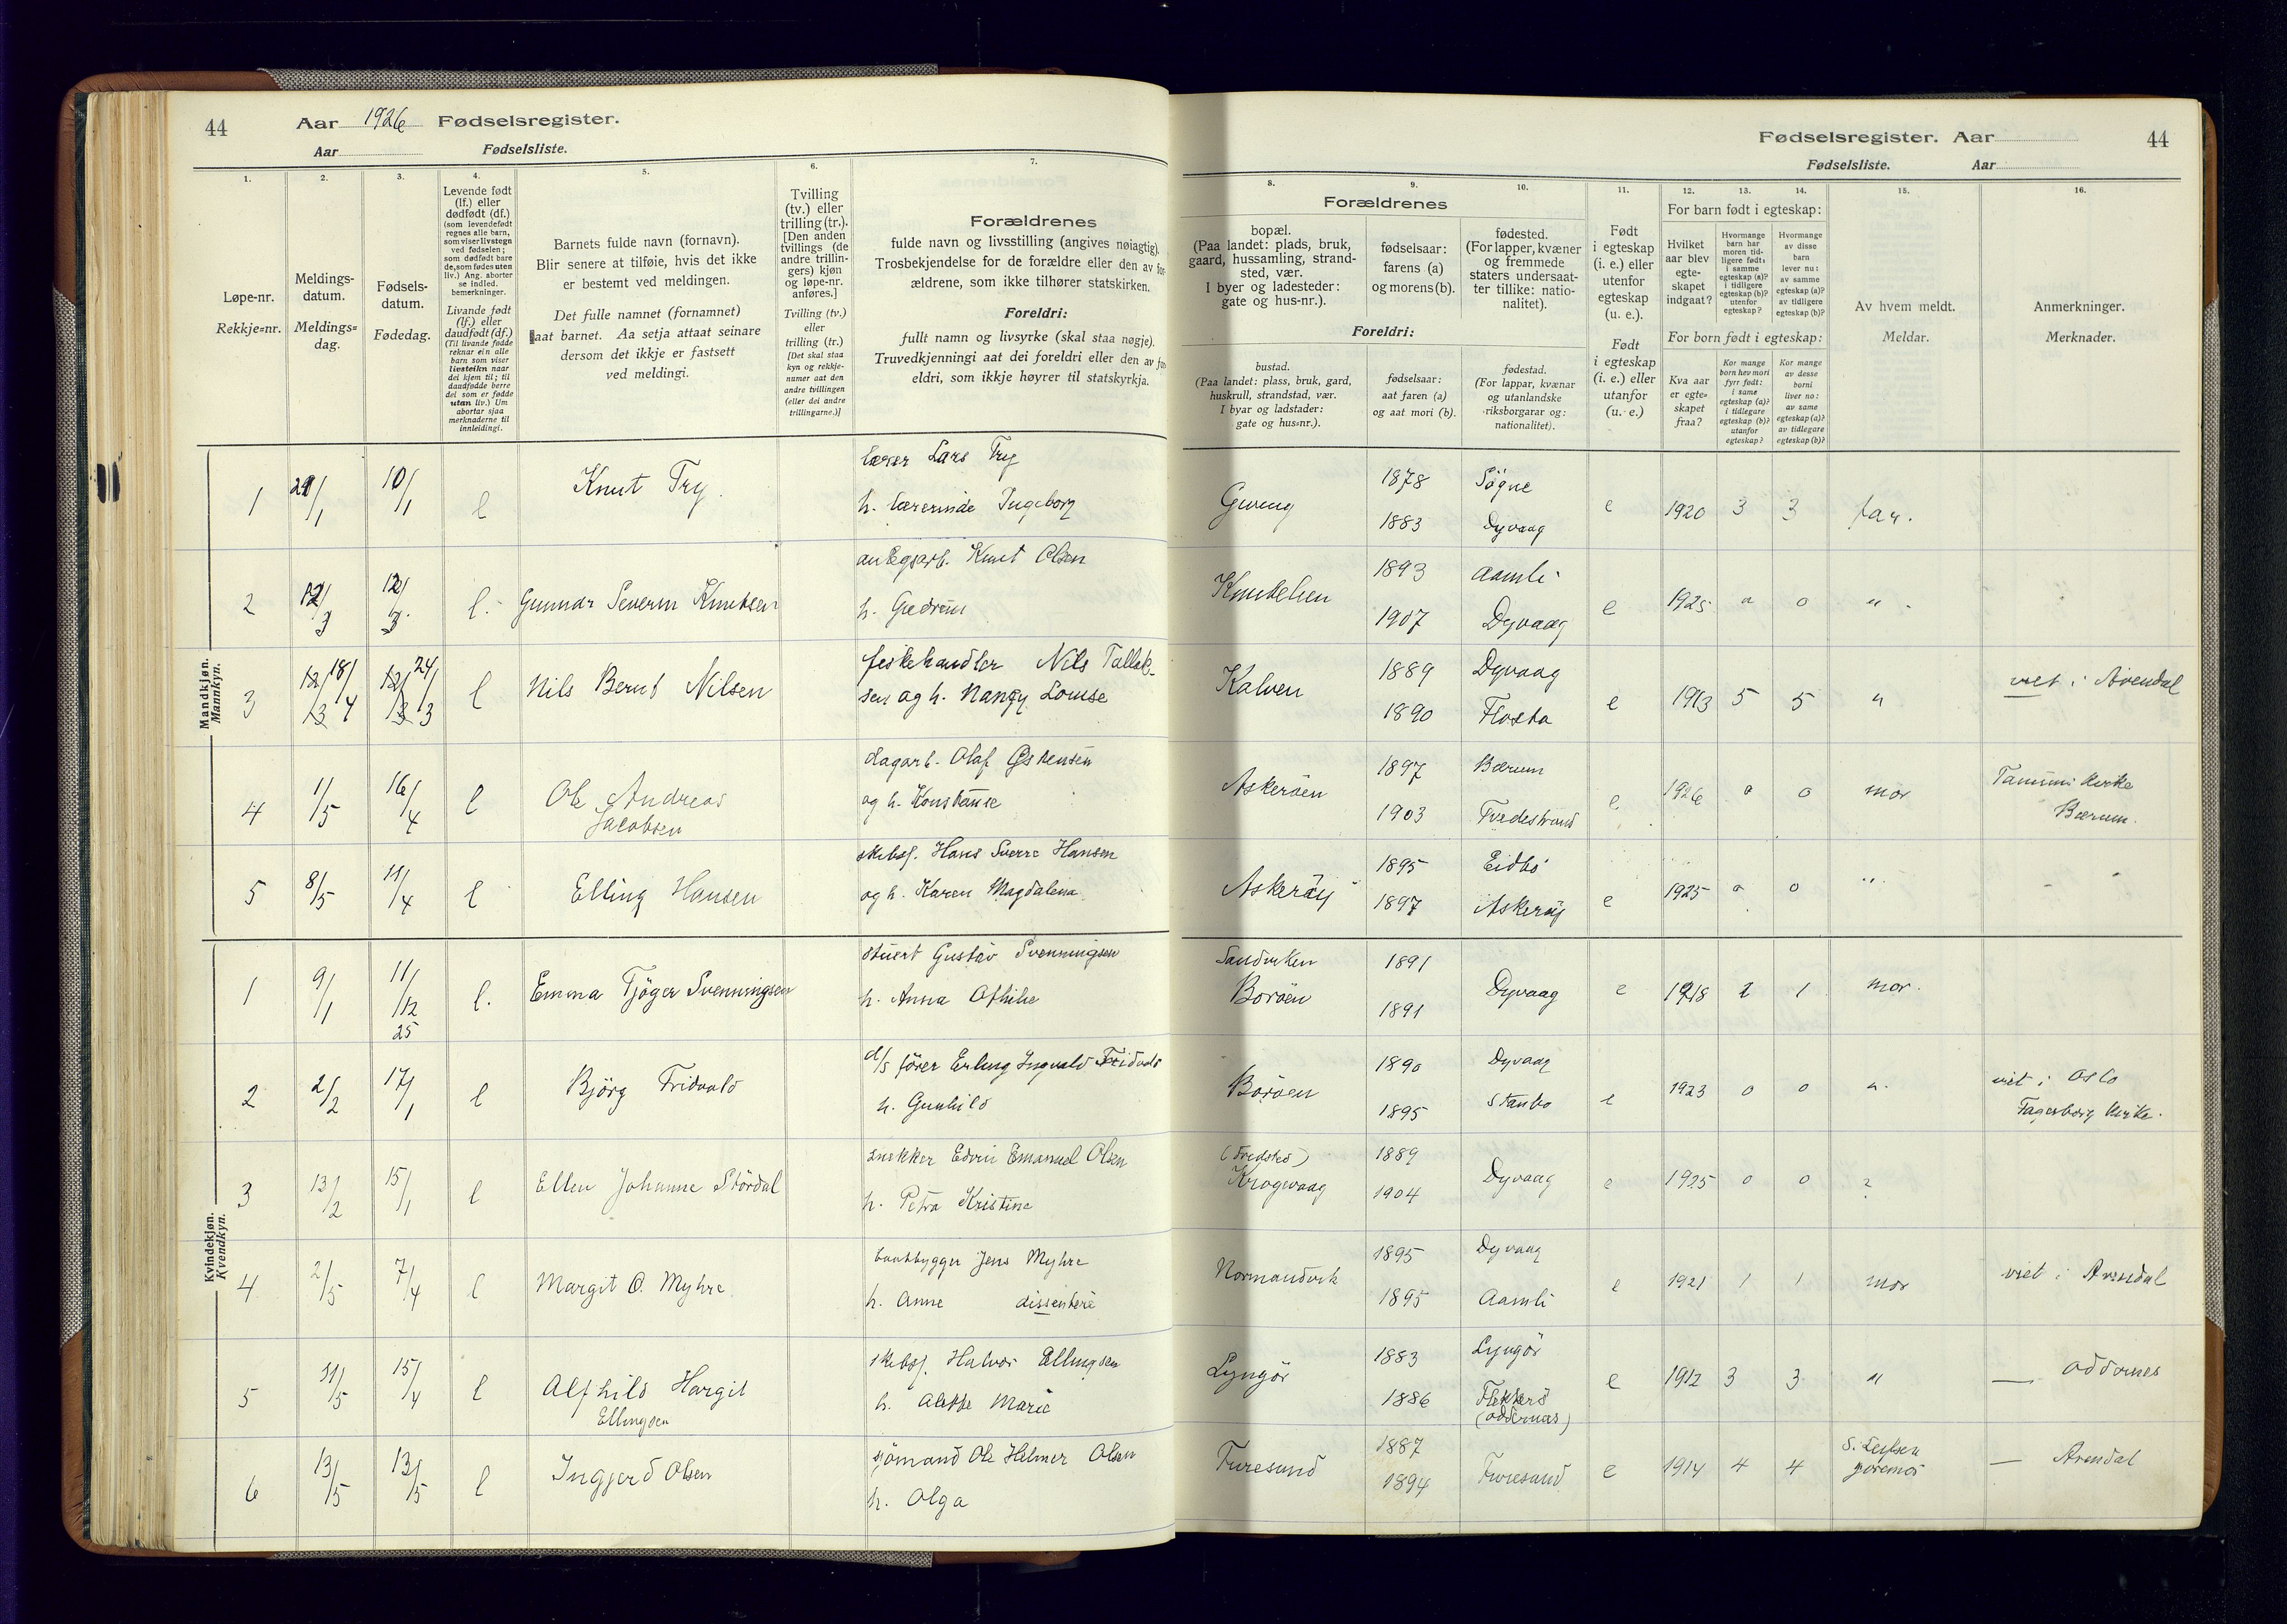 44
Aar 1926 Fødselsregister.
Aar Fødselsliste.
1.
2.
3.
4.
5.
6.
7.
Løpe-nr.
Rekkje=nr.
Meldings-
datum.
Meldings=
dag.
Fødsels-
datum.
Fødedag.
Levende født
(lf.) eller
dødfødt (df.)
(som levendefødt
regnes alle barn,
som viser livstegn
ved fødselen;
som dødfødt bare
de, som fødes uten
liv.) Ang. aborter
se indled.
bemerkninger.
Livande født
(lf.) eller
daudfødt (df.)
(Til livande fødde
reknar ein alle
barn som viser
livsteikn naar
dei kjem til; til
daudfødde berre
dei som er fødde
utan liv.) Um
abortar sjaa
merknaderne til
innleidingi.
Barnets fulde navn (fornavn).
Blir senere at tilføie, hvis det ikke
er bestemt ved meldingen.
Det fulle namnet (fornamnet)
aat barnet. Aa setja attaat seinare
dersom det ikkje er fastsett
ved meldingi.
Tvilling
(tv.) eller
trilling (tr.).
[Den anden
tvillings (de
andre trillin-
gers) kjøn
og løpe-nr.
anføres.]
Tvilling (tv.)
eller
trilling (tr.)
[Det skal staa
kyn og rekkje-
numer aat den
andre tvillingen
(eller dei andre
trillingarne.)]
Forældrenes
fulde navn og livsstilling (angives nøiagtig).
Trosbekjendelse for de forældre eller den av for-
ældrene, som ikke tilhører statskirken.
Foreldri:
fullt namn og livsyrke (skal staa nøgje).
Truvedkjenningi aat dei foreldri eller den av for-
eldri, som ikkje høyrer til statskyrkja.
Mandkjøn.
Mannkyn.
1 10/1 l Knut Try.
lærer Lars Try
h. lærerinde Ingeborg
2 12/3 12/3. l. Gunnar Severin Knutsen
anlegsarb. Knut Olsen
h. Gudrun
3 12/3 18/4 12/3 24/3 l Nils Bernt Nilsen
fiskehandler Nils Tallak-
sen og h. Nancy Louise
4 1/5 16/4 l Ole Andreas
Jacobsen
dagarb. Olaf
og h. Konstanse
5 8/5 11/4 l Elling Hansen
skibsf. Hans Sverre Hansen
og h. Karen Magdalena
Kvindekjøn.
Kvendkyn.
1 9/1 11/12 25 l. Emma Tjøger Svenningsen
stuert Gustav Svenningsen
h. Anna Othilie
2 2/2 17/1 l Bjørg Fridvold
d/s fører Erling Ingvald Fridvold
h. Gunhild
3 13/2 15/1 l Ellen Johanne Stördal
snekker Edvin Emanuel Olsen
h. Petra Kristine
4 2/5 7/4 l Margit O. Myhre
baatbygger Jens Myhre
h. Anne dissentere
5 11/5 15/4 l Alfhild Hargit
Ellingsen
skibsf. Halvor Ellingsen
h. Alette Marie
6 13/5 13/5 l Ingjerd Olsen
sjömand Ole Helmer Olsen
h. Olga
Fødselsregister. Aar 44
Fødselsliste. Aar
8.
9.
10.
11.
12.
13.
14.
15.
16.
Forældrenes
bopæl.
(Paa landet: plads, bruk,
gaard, hussamling, strand-
sted, vær.
I byer og ladesteder:
gate og hus-nr.).
fødselsaar:
farens (a)
og morens (b).
fødested.
(For lapper, kvæner
og fremmede
staters undersaat-
ter tillike: natio-
nalitet).
Foreldri:
bustad.
(Paa landet: plass, bruk, gard,
huskrull, strandstad, vær.
I byar og ladstader:
gate og hus=nr.).
fødselsaar:
aat faren (a)
og aat mori (b).
fødestad.
(For lappar, kvænar
og utanlandske
riksborgarar og:
nationalitet).
Født
i egteskap
(i. e.) eller
utenfor
egteskap
(u. e.).
Født
i egteskap
(i. e.) eller
utanfor
(u. e.)
For barn født i egteskap:
Hvilket
aar blev
egte-
skapet
indgaat?
Hvormange
barn har
moren tid-
ligere født:
i samme
egteskap (a)?
i tidligere
egteskap (b)?
utenfor
egteskap?
Hvormange
av disse
barn
lever nu:
av samme
egteskap (a)?
av tidligere
egteskap (b)?
For born født i egteskap:
Kva aar
er egte=
skapet
fraa?
Kor mange
born hev mori
fyrr født:
i same
egteskap (a)?
i tidlegare
egteskap (b)?
utanfor
egteskap?
Kor mange
av desse
borni
liver no:
av same
egteskap (a)?
av tidlegare
egteskap (b)?
Av hvem meldt.
Meldar.
Anmerkninger.
Merknader.
Gweng 1878 Søgne
1883 Dyvaag e 1920 3 3 far.
1893 Aamli
1907 Dyvaag e 1925 0 0 "
Kalven 1889 Dyvaag
1890 Flosta e 1913 5 5 " viet i Arendal
Askerøen 1897 Bærum
1903 Tvedestrand e 1926 0 0 mor Tanum kirke
Bærum.
Askerøy 1895 Eidbo
1897 Askerøy e 1925 0 0 " - -
Sandviken
Borøen 1891
1891 Dyvaag e 1918 2 1 mor.
Borøen 1890 Dyvaag
1895 Stanbo e 1923 0 0 " viet i Oslo
Fagerborg kirke.
(Fredsted)
Krogevaag 1889
1904 Dyvaag e 1925 0 0
Normandvik 1895 Dyvaag
1895 Aamli e 1921 1 1 mor viet i Arendal
Lyngör 1883 Lyngör
1886 Flekkerö
(Oddernes) e 1912 3 3 " — Oddernes
Furesund 1887
1894 Furesund e 1914 4 4 S. Leifsen
jordmor — Arendal